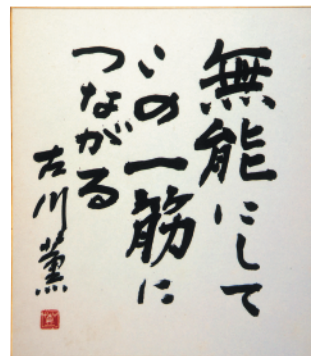 無能にして
この一筋に
つながる
古川薫